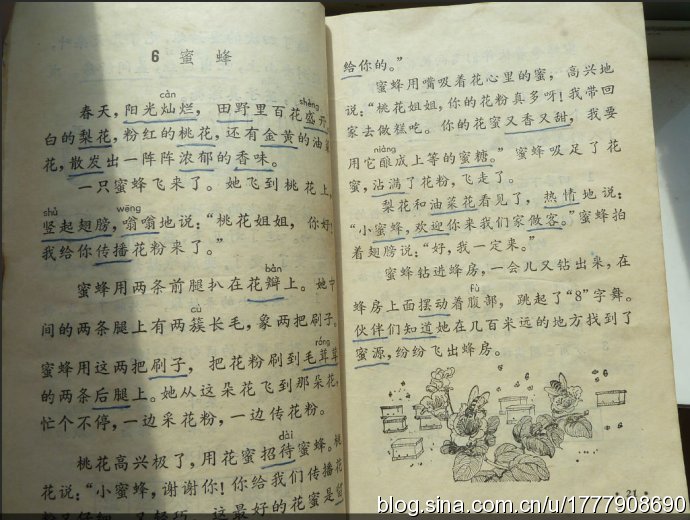 6 蜜蜂
càn
春天，阳光灿烂，田野里百花盛开，
shèng
白的梨花，粉红的桃花，还有金黄的油菜
花，散发出一阵阵浓郁的香味。
一只蜜蜂飞来了。她飞到桃花上，
shù wēng
竖起翅膀，嗡嗡地说：“桃花姐姐，你好！
我给你传播花粉来了。”
bàn
蜜蜂用两条前腿扒在花瓣上。她中
cù
间的两条腿上有两簇长毛，象两把刷子。
róng
蜜蜂用这两把刷子，把花粉刷到毛茸茸
的两条后腿上。她从这朵花飞到那朵花，
忙个不停，一边采花粉，一边传花粉。
dài
桃花高兴极了，用花蜜招待蜜蜂。桃
花说：“小蜜蜂，谢谢你！你给我们传播花
粉又仔细，又轻巧，这最好的花蜜是留
给你的。”
蜜蜂用嘴吸着花心里的蜜，高兴地
说：“桃花姐姐，你的花粉真多呀！我带回
家去做糕吃。你的花蜜又香又甜，我要
niàng
用它酿成上等的蜜糖。”蜜蜂吸足了花
蜜，沾满了花粉，飞走了。
梨花和油菜花看见了，热情地说：
“小蜜蜂，欢迎你来我们家做客。”蜜蜂拍
着翅膀说：“好，我一定来。”
蜜蜂钻进蜂房，一会儿又钻出来，在
fù
蜂房上面摆动着腹部，跳起了“8”字舞。
伙伴们知道她在几百米远的地方找到了
蜜源，纷纷飞出蜂房。
· 21 ·
blog.sina.com.cn/u/1777908690